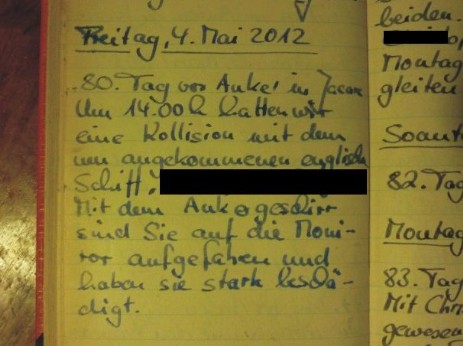 Freitag, 4. Mai 2012
80. Tag vor Anker in Jacare
Um 14.00 h hatten wir
eine Kollision mit dem
neu angekommenen englisch
Schiff,
Mit dem Ankergeschirr
sind Sie auf die Moni-
ror aufgefahren und
haben sie stark beschä-
digt.
beiden.
Montag
gleiten
Sonnt
82. Tag
Montag
83. Tag
Mit Chr
gewesen